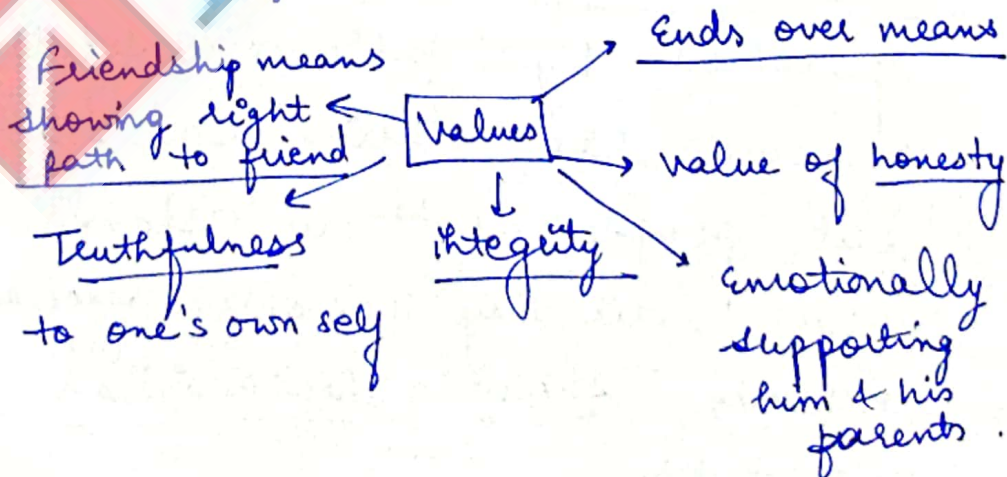 Ends over means
Friendship means
showing right
path to friend
Values
value of honesty
Truthfulness
to one's own self
integrity
Emotionally
supporting
him & his
parents.